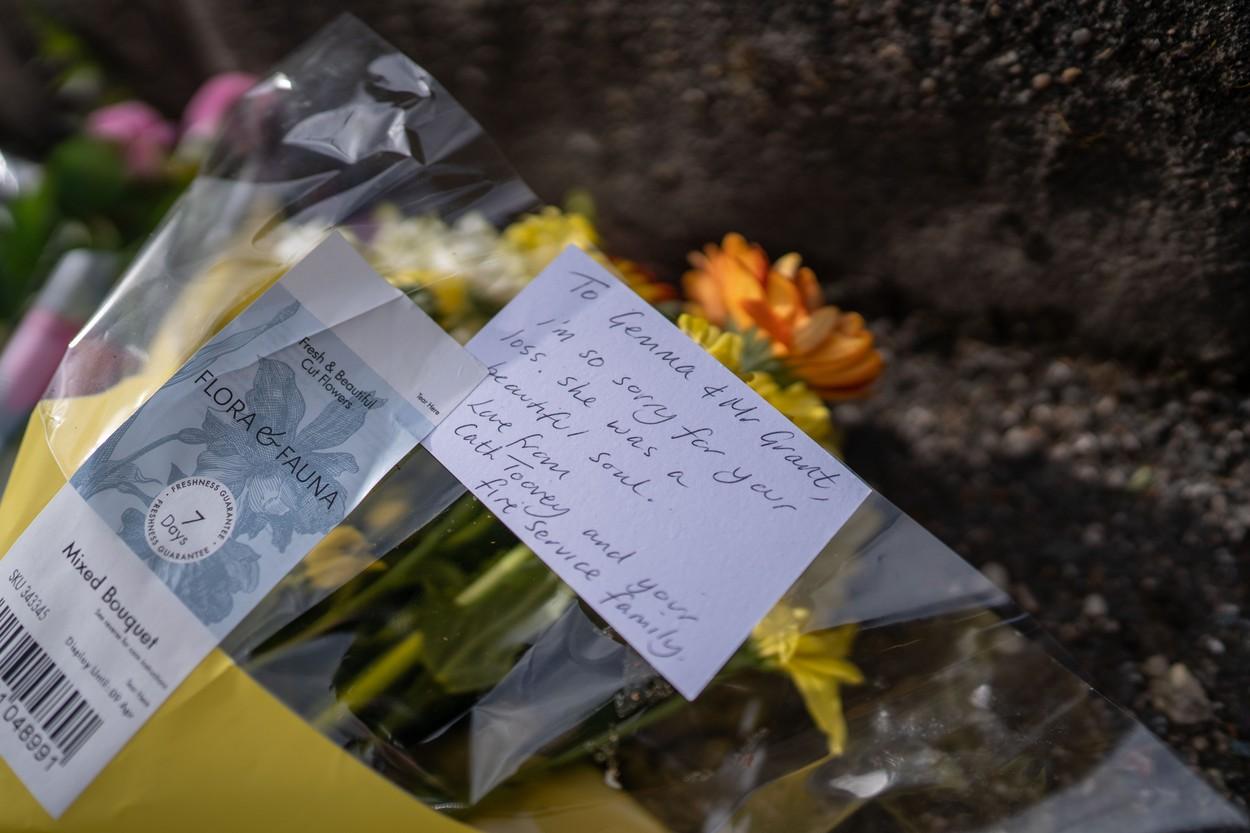 Fresh & Beautiful
Cut Flowers
Tear Here
FLORA & FAUNA
FRESHNESS GUARANTEE
7
Days
FRESHNESS GUARANTEE
Mixed Bouquet
SKU 343345
Display Until: 09 Apr
Tear Here
1048991
To Gemma & Mr Grant,
I'm so sorry for your
loss. She was a
beautiful soul.
Love from
Cath Toovey and your
fire service family.